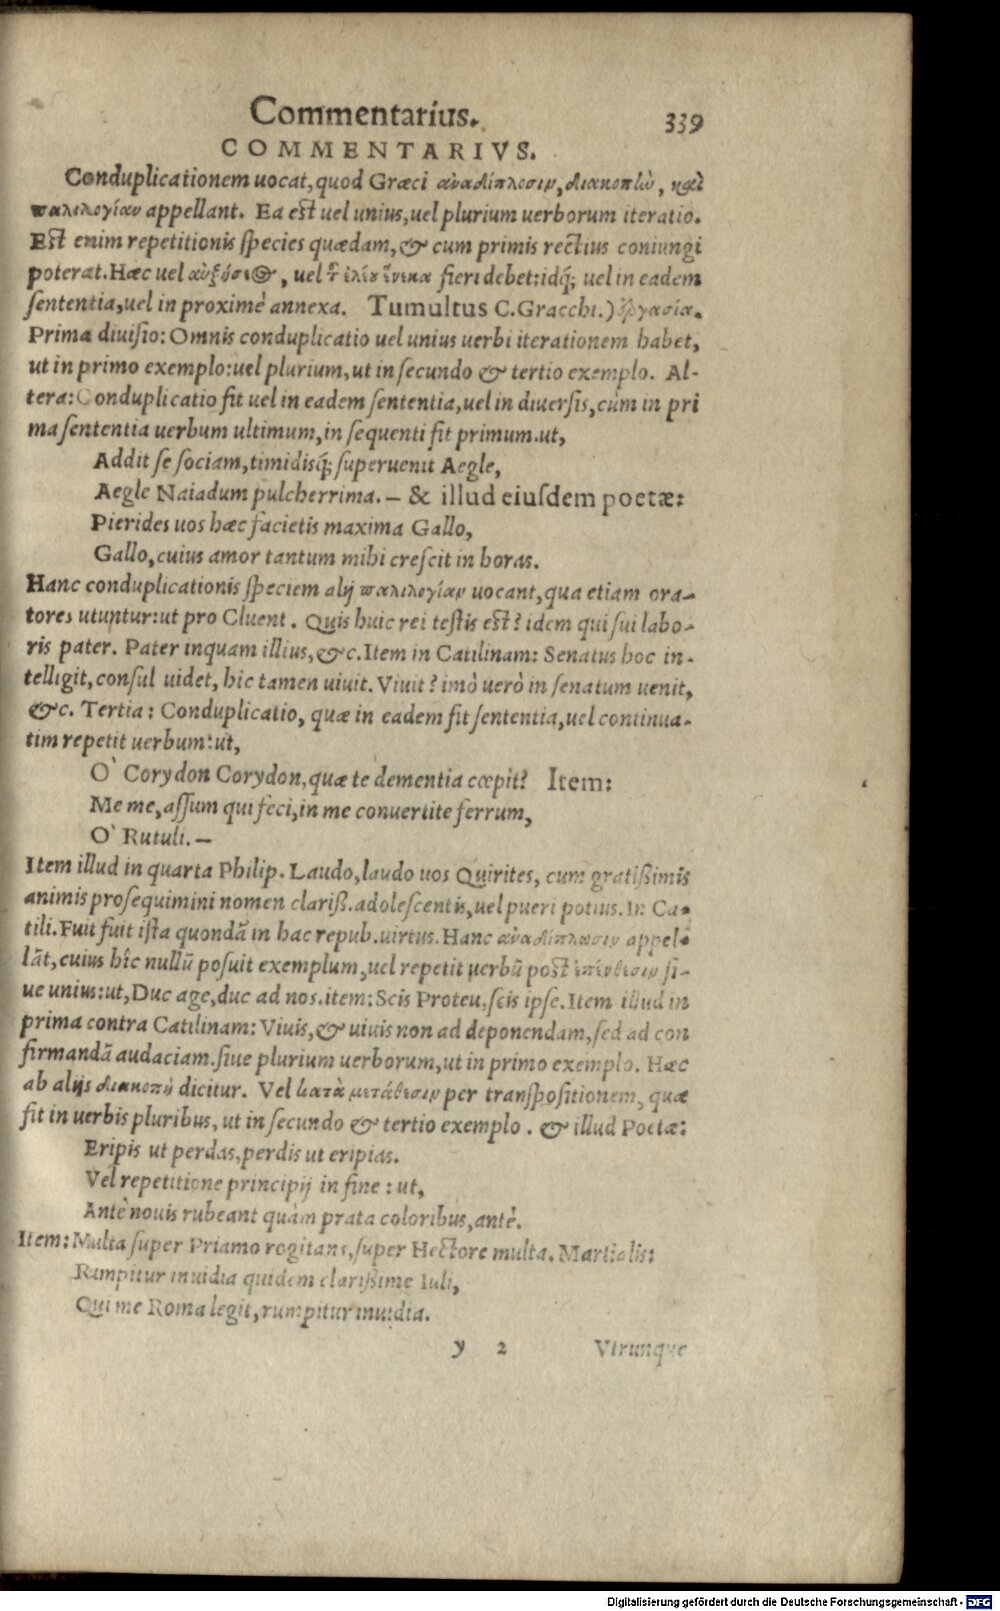 Commentarius. 339
COMMENTARIVS.
Conduplicationem uocat, quod Græci ἀναδίπλοσιν, διακοπὴν, καὶ
παλιλογίαν appellant. Ea est uel unius, uel plurium uerborum iteratio.
Est enim repetitionis species quædam, & cum primis rectius coniungi
poterat. Hæc uel αὐξήσεως, uel τ ἐλέου ἕνεκα fieri debet: idq́; uel in eadem
sententia, uel in proximè annexa. Tumultus C. Gracchi.) ἐργασία.
Prima diuisio: Omnis conduplicatio uel unius uerbi iterationem habet,
ut in primo exemplo: uel plurium, ut in secundo & tertio exemplo. Al-
tera: Conduplicatio fit uel in eadem sententia, uel in diuersis, cùm in pri
ma sententia uerbum ultimum, in sequenti fit primum. ut,
Addit se sociam, timidisq́; superuenit Aegle,
Aegle Naiadum pulcherrima. — & illud eiusdem poetæ:
Pierides uos hæc facietis maxima Gallo,
Gallo, cuius amor tantum mihi crescit in horas.
Hanc conduplicationis speciem alij παλιλογίαν uocant, qua etiam ora-
tores utuntur: ut pro Cluent. Quis huic rei testis est? idem qui sui labo-
ris pater. Pater inquam illius, &c. Item in Catilinam: Senatus hoc in-
telligit, consul uidet, hic tamen uiuit. Viuit? imò uerò in senatum uenit,
&c. Tertia: Conduplicatio, quæ in eadem fit sententia, uel continua-
tim repetit uerbum: ut,
O` Corydon Corydon, quæ te dementia cœpit? Item:
Me me, assum qui feci, in me conuertite ferrum,
O` Rutuli. —
Item illud in quarta Philip. Laudo, laudo uos Quirites, cum gratißimis
animis prosequimini nomen clariß. adolescentis, uel pueri potius. In Ca-
tili. Fuit fuit ista quondā in hac repub. uirtus. Hanc ἀναδίπλωσιν appel-
lāt, cuius hîc nullū posuit exemplum, uel repetit uerbū post ἐπένθεσιν si-
ue unius: ut, Duc age, duc ad nos. item: Scis Proteu, scis ipse. Item illud in
prima contra Catilinam: Viuis, & uiuis non ad deponendam, sed ad con
firmandā audaciam. siue plurium uerborum, ut in primo exemplo. Hæc
ab alijs διακοπὴ dicitur. Vel κατὰ μετάθεσιν per transpositionem, quæ
fit in uerbis pluribus, ut in secundo & tertio exemplo. & illud Poetæ:
Eripis ut perdas, perdis ut eripias.
Vel repetitione principij in fine: ut,
Antè nouis rubeant quàm prata coloribus, antè.
Item: Multa super Priamo rogitans, super Hectore multa. Martialis:
Rumpitur inuidia quidem clarißime Iuli,
Qui me Roma legit, rumpitur inuidia.
y 2 Vtrunque
Digitalisierung gefördert durch die Deutsche Forschungsgemeinschaft - DFG